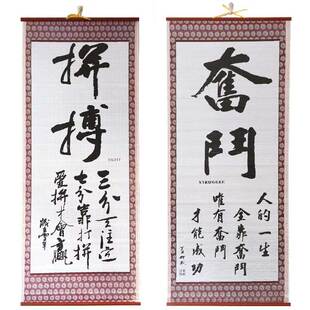 奮鬥
STRUGGLE
人的一生
全靠奮鬥
唯有奮鬥
才能成功
拼搏
FIGHT
三分天注定
七分靠打拼
愛拼才會贏